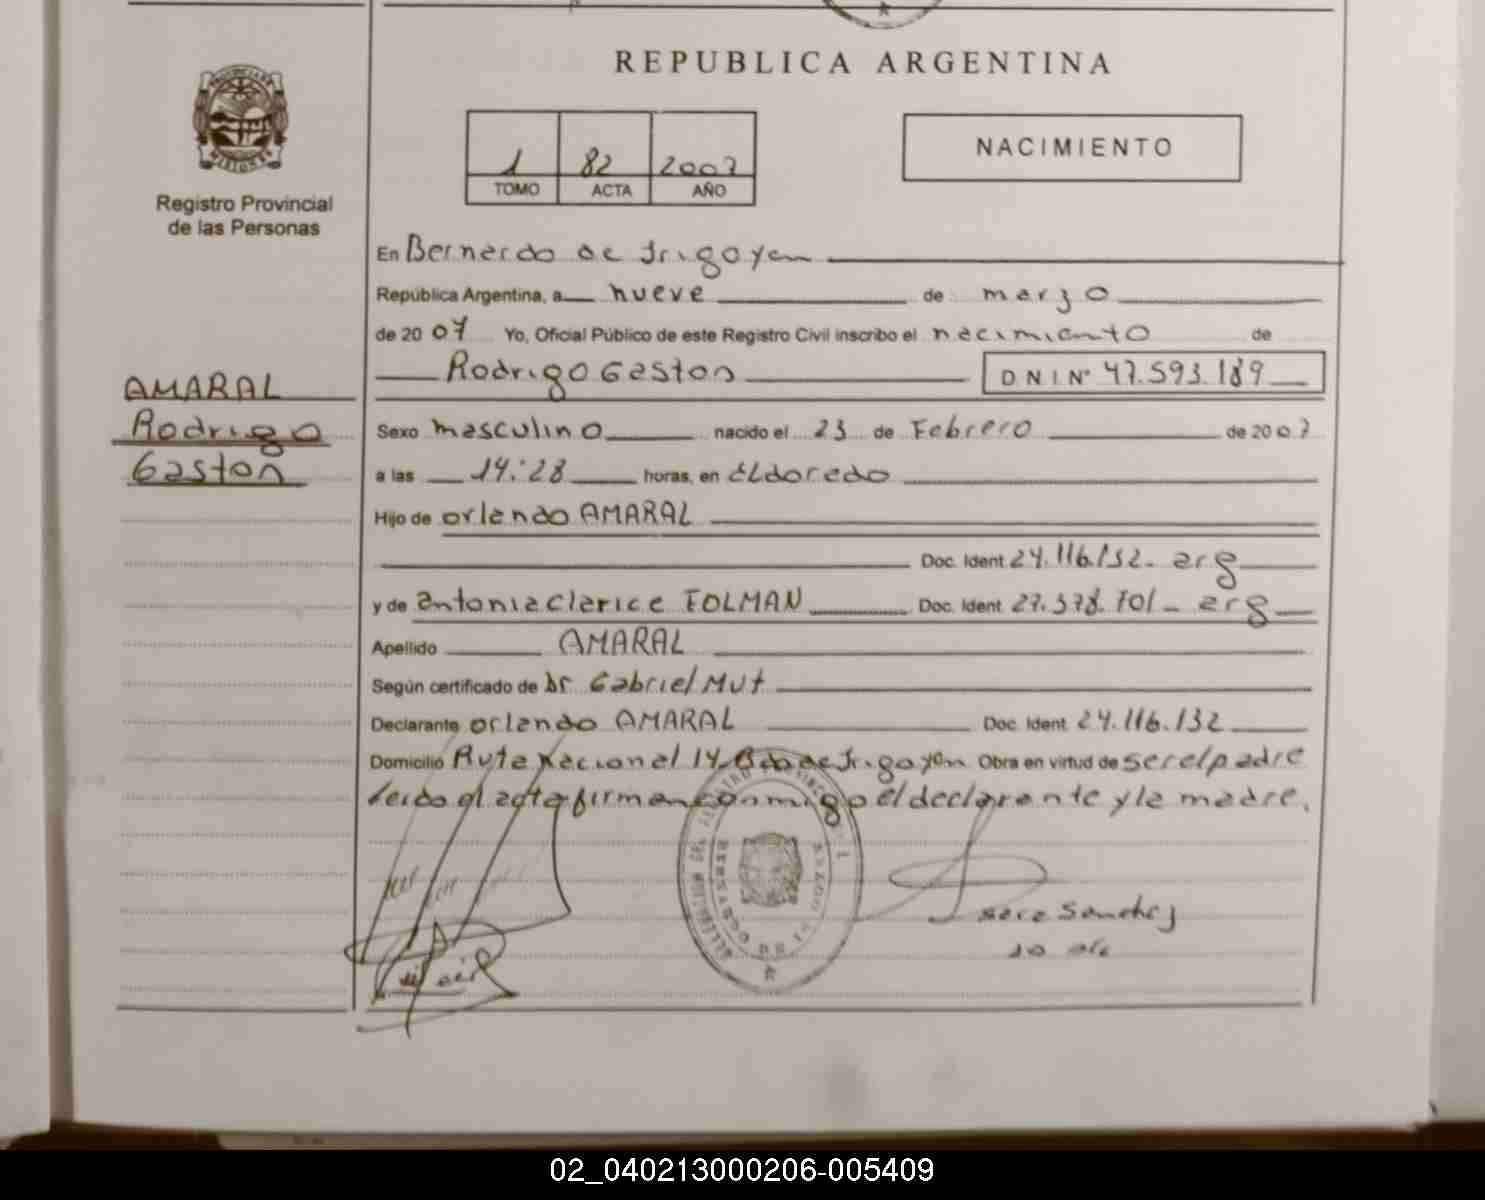 REPUBLICA ARGENTINA
PROVINCIA DE MISIONES
Registro Provincial
de las Personas
1 82 2007
TOMO ACTA AÑO
NACIMIENTO
En Bernardo de Irigoyen
República Argentina, a nueve de marzo
de 2007 Yo, Oficial Público de este Registro Civil inscribo el nacimiento de
Rodrigo Gaston D.N.I. Nº 47.593.189
AMARAL
Rodrigo
Gaston
Sexo masculino nacido el 23 de Febrero de 2007
a las 14:28 horas, en Eldorado
Hijo de orlando AMARAL
Doc. Ident 24.116.132- arg
y de antonia clarice FOLMAN Doc. Ident 27.378.701- arg
Apellido AMARAL
Según certificado de Dr Gabriel Mut
Declarante orlando AMARAL Doc. Ident 24.116.132
Domicilio Ruta nacional 14 Bdo de Irigoyen Obra en virtud de ser el padre
leido el acta firman conmigo el declarante y la madre.
02_040213000206-005409